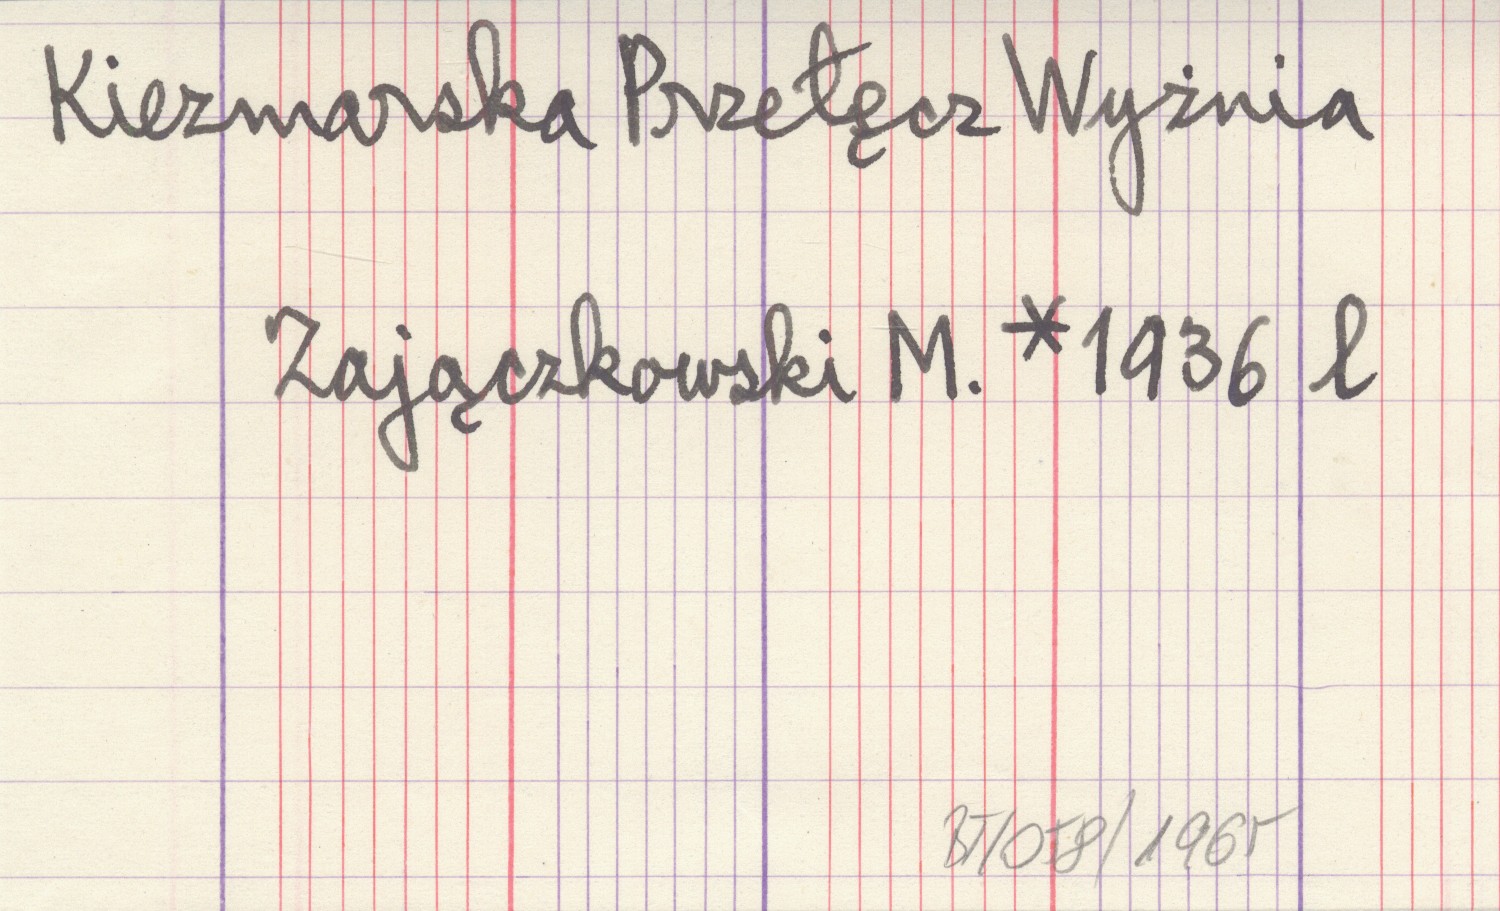 Kiezmarska Przełęcz Wyżnia
Zajączkowski M. *1936 l
BT/058/1965